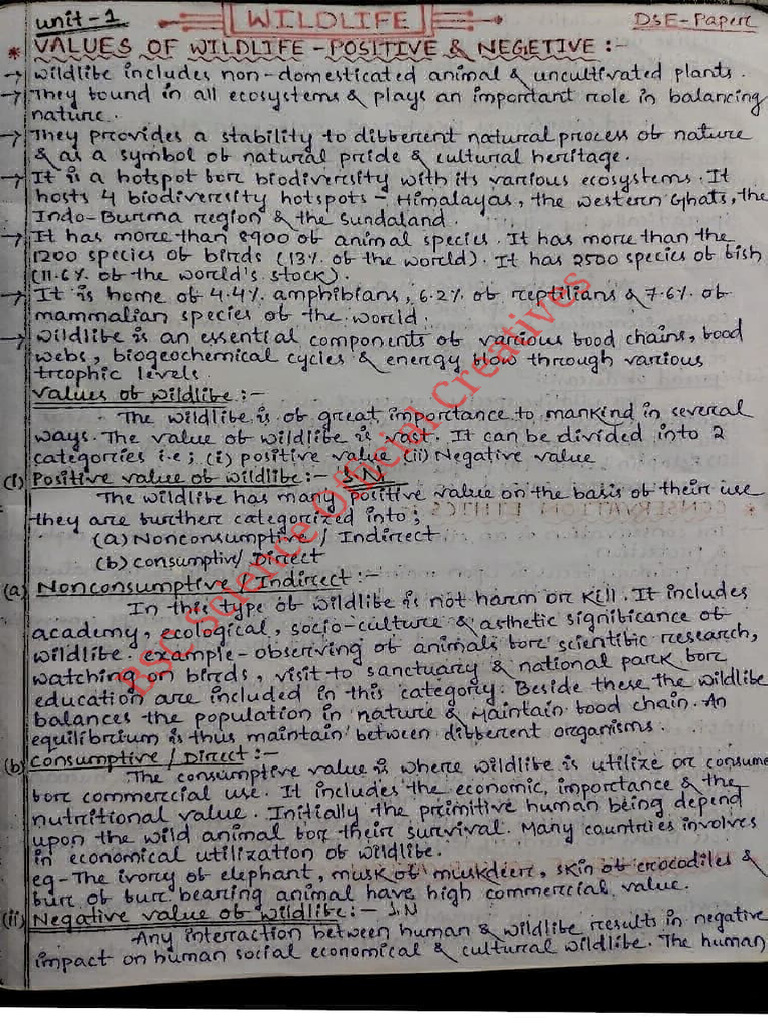 unit-1
WILDLIFE
DSE-Paper
* VALUES OF WILDLIFE - POSITIVE & NEGETIVE :-
→ Wildlife includes non-domesticated animal & uncultivated plants.
→ They found in all ecosystems & plays an important role in balancing
nature.
→ They provides a stability to different natural process of nature
& as a symbol of natural pride & cultural heritage.
→ It is a hotspot for biodiversity with its various ecosystems. It
hosts 4 biodiversity hotspots - Himalayas, the Western Ghats, the
Indo-Burma region & the Sundaland.
→ It has more than 8900 of animal species. It has more than the
1200 species of birds (13% of the world). It has 2500 species of fish
(11.6% of the world's stock).
→ It is home of 4.4% amphibians, 6.2% of reptilians & 7.6% of
mammalian species of the world.
→ Wildlife is an essential components of various food chains, food
webs, biogeochemical cycles & energy flow through various
trophic levels.
Values of wildlife :-
The wildlife is of great importance to mankind in several
ways. The value of wildlife is vast. It can be divided into 2
categories i.e; (i) positive value (ii) Negative value
(i) Positive value of wildlife :- S.N
The wildlife has many positive value on the basis of their use
they are further categorized into;
(a) Nonconsumptive / Indirect
(b) consumptive/ Direct
(a) Nonconsumptive / Indirect :-
In this type of wildlife is not harm or kill. It includes
academy, ecological, socio-culture & asthetic significance of
wildlife. example - observing of animals for scientific research,
watching on birds, visit to sanctuary & national park for
education are included in this category. Beside these the wildlife
balances the population in nature & Maintain food chain. An
equilibrium is thus maintain between different organisms.
(b) Consumptive / Direct :-
The consumptive value is where wildlife is utilize or consume
for commercial use. It includes the economic, importance & the
nutritional value. Initially the primitive human being depend
upon the wild animal for their survival. Many countries involves
in economical utilization of wildlife.
eg - The ivory of elephant, musk of muskdeer, skin of crocodiles &
fur of fur bearing animal have high commercial value.
(ii) Negative value of wildlife :- S.N
Any interaction between human & wildlife results in negative
impact on human social economical & cultural wildlife. The human
BSC Science Official Creatives